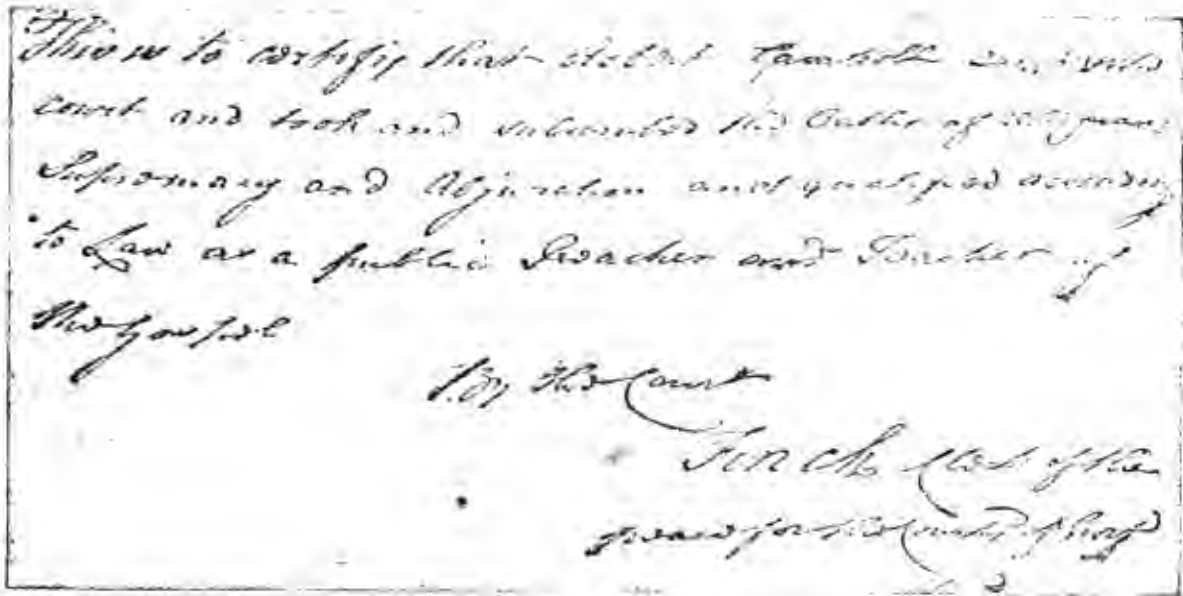 This is to certify that Robert in
court and took and subscribed the Oaths of Allegiance
Supremacy and Abjuration and qualified according
to Law as a public Preacher and Teacher of
the Gospel
By the Court
Finch Clerk of the
peace for the County of